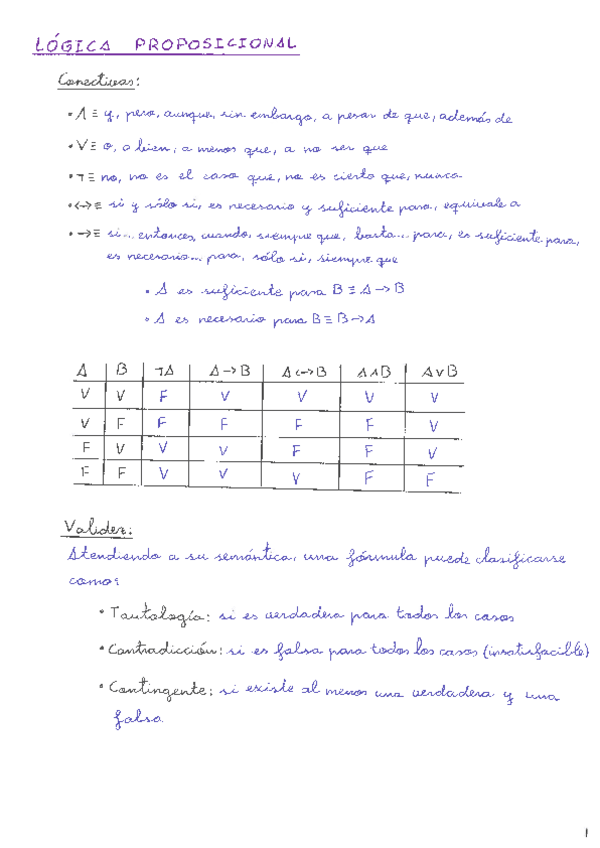 LÓGICA PROPOSICIONAL
Conectivas:
• ∧ ≡ y, pero, aunque, sin embargo, a pesar de que, además de
• ∨ ≡ o, o bien, a menos que, a no ser que
• ¬ ≡ no, no es el caso que, no es cierto que, nunca
• <-> ≡ si y sólo si, es necesario y suficiente para, equivale a
• -> ≡ si... entonces, cuando, siempre que, basta... para, es suficiente para,
es necesario... para, sólo si, siempre que
• A es suficiente para B ≡ A -> B
• A es necesario para B ≡ B -> A
A B ¬A A -> B A <-> B A ∧ B A ∨ B
V V F V V V V
V F F F F F V
F V V V F F V
F F V V V F F
Validez:
Atendiendo a su semántica, una fórmula puede clasificarse
como:
• Tautología: si es verdadera para todos los casos
• Contradicción: si es falsa para todos los casos (insatisfacible)
• Contingente: si existe al menos una verdadera y una
falsa
1